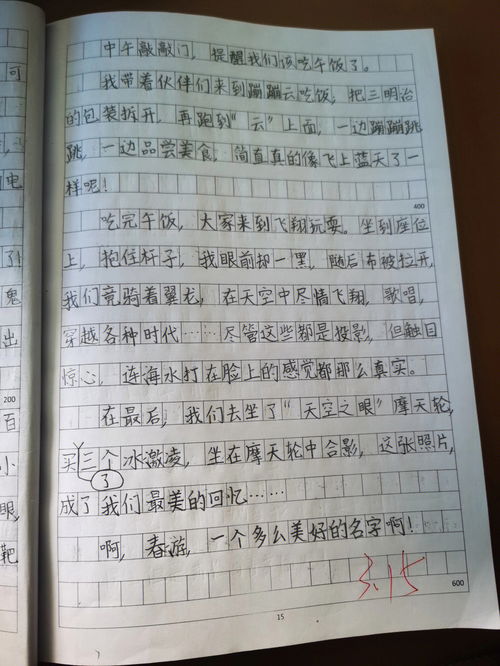 中午敲敲门，提醒我们该吃午饭了。
我带着伙伴们来到蹦蹦云吃饭，把三明治
的包装拆开，再跑到“云”上面，一边蹦蹦跳
跳，一边品尝美食，简直真的像飞上蓝天了一
样呢！
400
吃完午饭，大家来到飞翔玩耍。坐到座位
上，抱住杆子，我眼前却一黑，随后布被拉开，
我们竟骑着翼龙，在天空中尽情飞翔，歌唱，
穿越各种时代……尽管这些都是投影，但触目
惊心，连海水打在脸上的感觉都那么真实。
在最后，我们去坐了“天空之眼”摩天轮，
买三个冰激凌，坐在摩天轮中合影，这张照片，
了
成了我们最美的回忆……
啊，春游，一个多么美好的名字啊！
3.15
600
15
可
电
了
鬼
出
200
百
小
眼，
靶